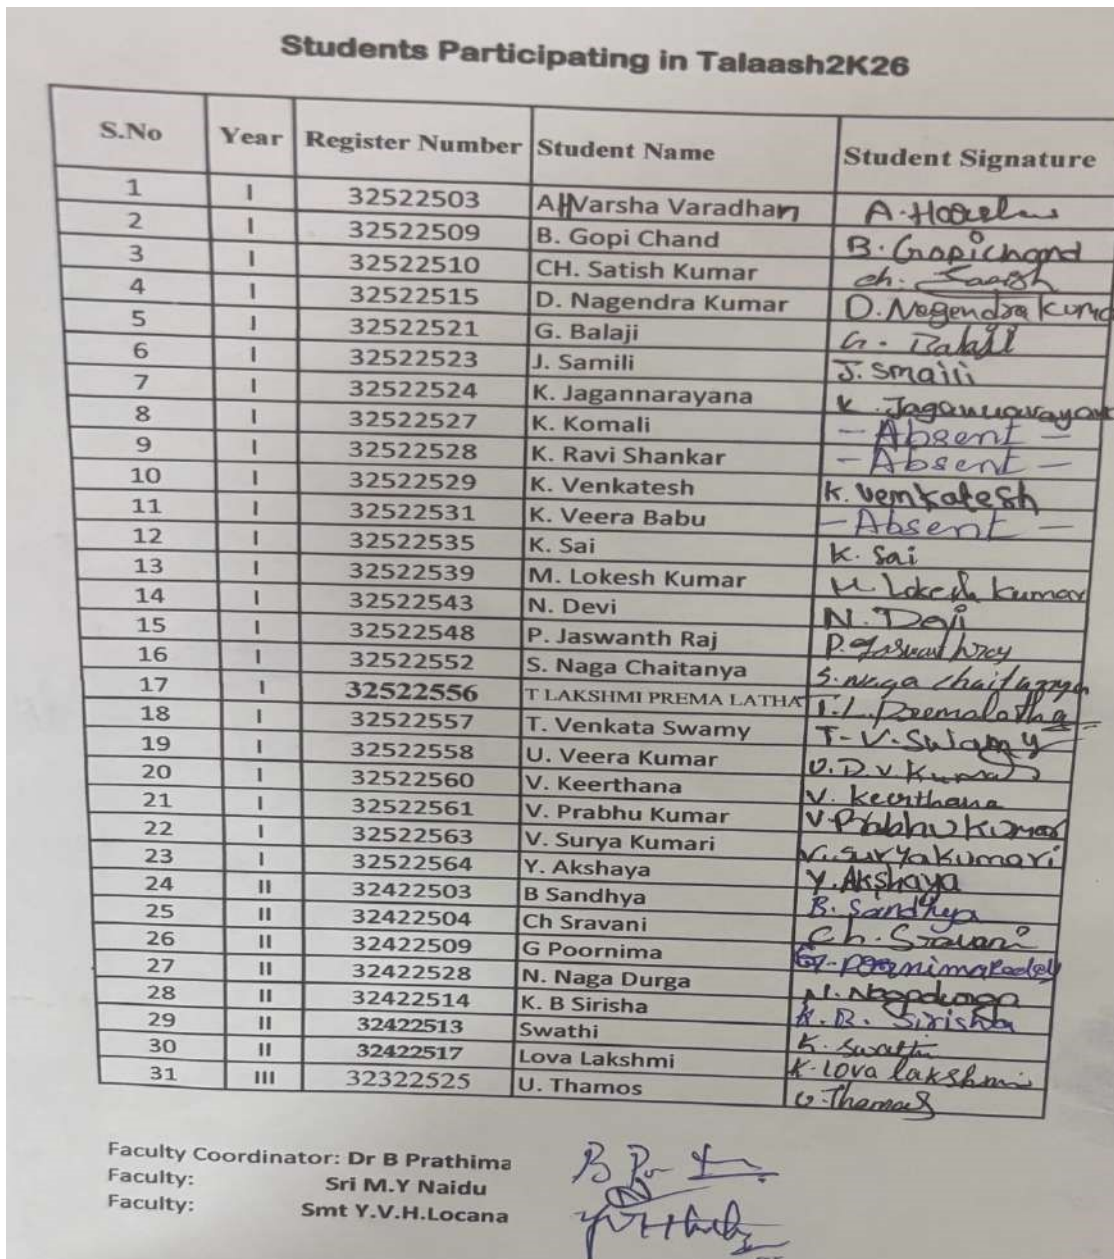 Students Participating in Talaash2K26
S.No Year Register Number Student Name Student Signature
1 I 32522503 A H Varsha Varadhan
2 I 32522509 B. Gopi Chand B. Gopichand
3 I 32522510 CH. Satish Kumar ch.
4 I 32522515 D. Nagendra Kumar D. Nagendra Kuma
5 I 32522521 G. Balaji G. Balaji
6 I 32522523 J. Samili J. Smaili
7 I 32522524 K. Jagannarayana K. Jagannarayana
8 I 32522527 K. Komali - Absent -
9 I 32522528 K. Ravi Shankar - Absent -
10 I 32522529 K. Venkatesh K. Venkatesh
11 I 32522531 K. Veera Babu - Absent -
12 I 32522535 K. Sai K. Sai
13 I 32522539 M. Lokesh Kumar M. Lokesh Kumar
14 I 32522543 N. Devi N.
15 I 32522548 P. Jaswanth Raj P.
16 I 32522552 S. Naga Chaitanya S. Naga Chaitanya
17 I 32522556 T LAKSHMI PREMA LATHA T.L. Premalatha
18 I 32522557 T. Venkata Swamy T-V-Swamy
19 I 32522558 U. Veera Kumar U.D.V Kumar
20 I 32522560 V. Keerthana V. Keerthana
21 I 32522561 V. Prabhu Kumar V. Prabhu Kumar
22 I 32522563 V. Surya Kumari V. Surya kumari
23 I 32522564 Y. Akshaya Y. Akshaya
24 II 32422503 B Sandhya B. Sandhya
25 II 32422504 Ch Sravani Ch. Sravani
26 II 32422509 G Poornima G. Poornima Reddy
27 II 32422528 N. Naga Durga N. Nagadurga
28 II 32422514 K. B Sirisha K. B. Sirisha
29 II 32422513 Swathi K. Swathi
30 II 32422517 Lova Lakshmi K. Lova lakshmi
31 III 32322525 U. Thamos U. Thamas
Faculty Coordinator: Dr B Prathima
Faculty: Sri M.Y Naidu
Faculty: Smt Y.V.H.Locana